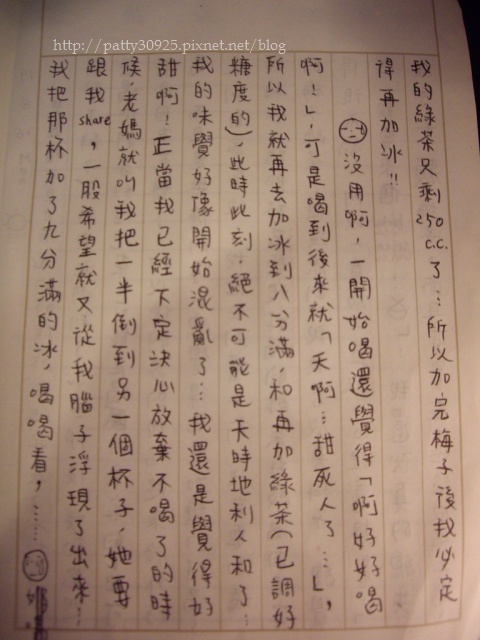 http://patty30925.pixnet.net/blog
我的綠茶只剩250c.c.了…所以加完梅子後我必定
得再加冰!!
沒用啊，一開始喝還覺得「啊好好喝
啊!」，可是喝到後來就「天啊…甜死人了…」，
所以我就再去加冰到八分滿，和再加綠茶(已調好
糖度的)，此時此刻，絕不可能是天時地利人和了…
我的味覺好像開始混亂了…我還是覺得好
甜啊!正當我已經下定決心放棄不喝了的時
候，老媽就叫我把一半倒到另一個杯子，她要
跟我share，一股希望就又從我腦子浮現了出來…
我把那杯加了九分滿的冰，喝喝看，……